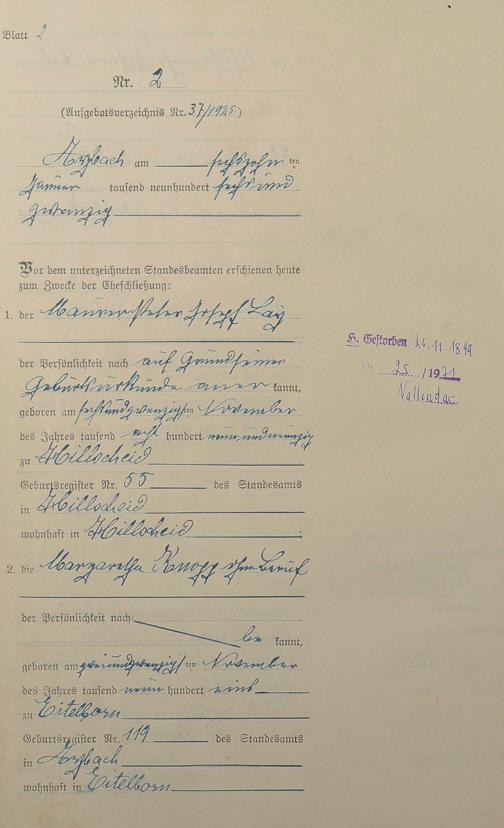 Blatt 2
Nr. 2
(Aufgebotsverzeichnis Nr. 37/1925)
Arzbach am sechszehn ten
Januar tausend neunhundert sechs und
zwanzig
Vor dem unterzeichneten Standesbeamten erschienen heute
zum Zwecke der Eheschließung:
1. der Maurer Peter Josef Lay
der Persönlichkeit nach auf Grund seiner
Geburtsurkunde aner kannt,
geboren am sechsundzwanzigsten November
des Jahres tausend acht hundert neunundneunzig
zu Hillscheid
Geburtsregister Nr. 55 des Standesamts
in Hillscheid
wohnhaft in Hillscheid ;
2. die Margaretha Knopp ohne Beruf
der Persönlichkeit nach
be kannt,
geboren am zweiundzwanzigsten November
des Jahres tausend neun hundert eins
zu Eitelborn
Geburtsregister Nr. 119 des Standesamts
in Arzbach
wohnhaft in Eitelborn
Gestorben 26.11.1899
25/1931
Vallendar